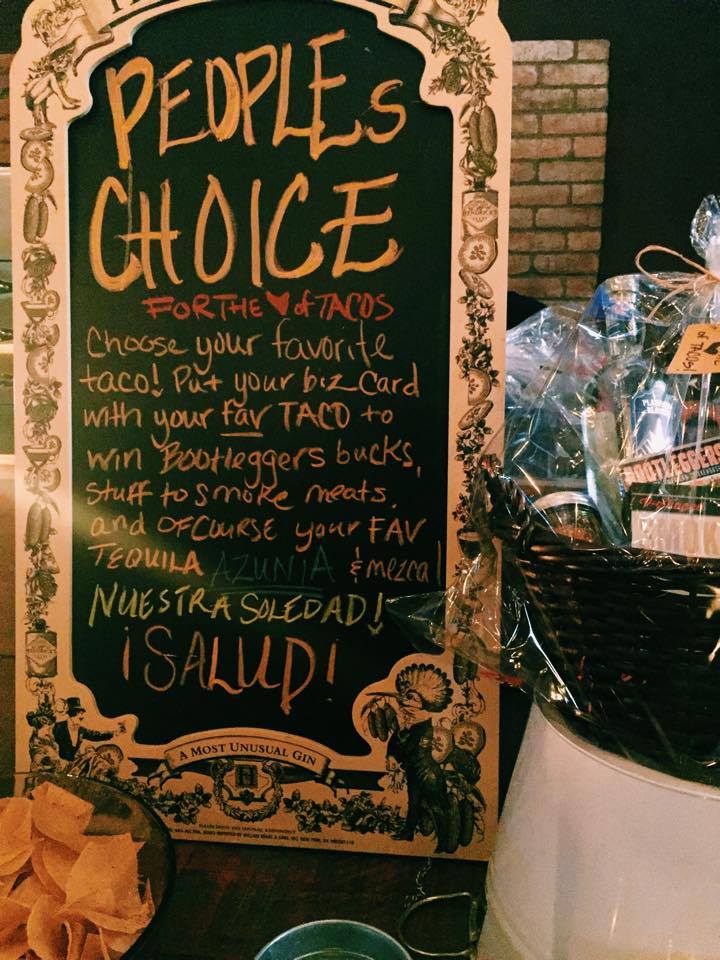 PEOPLES
CHOICE
FOR THE ♥ of TACOS
Choose your favorite
taco! Put your biz Card
with your fav TACO to
win Bootleggers bucks,
stuff to smoke meats,
and OFCOURSE your FAV
TEQUILA AZUNIA & mezcal
NUESTRA SOLEDAD!
¡SALUD!
A MOST UNUSUAL GIN
H
of TACOS
BOOTLEGGERS